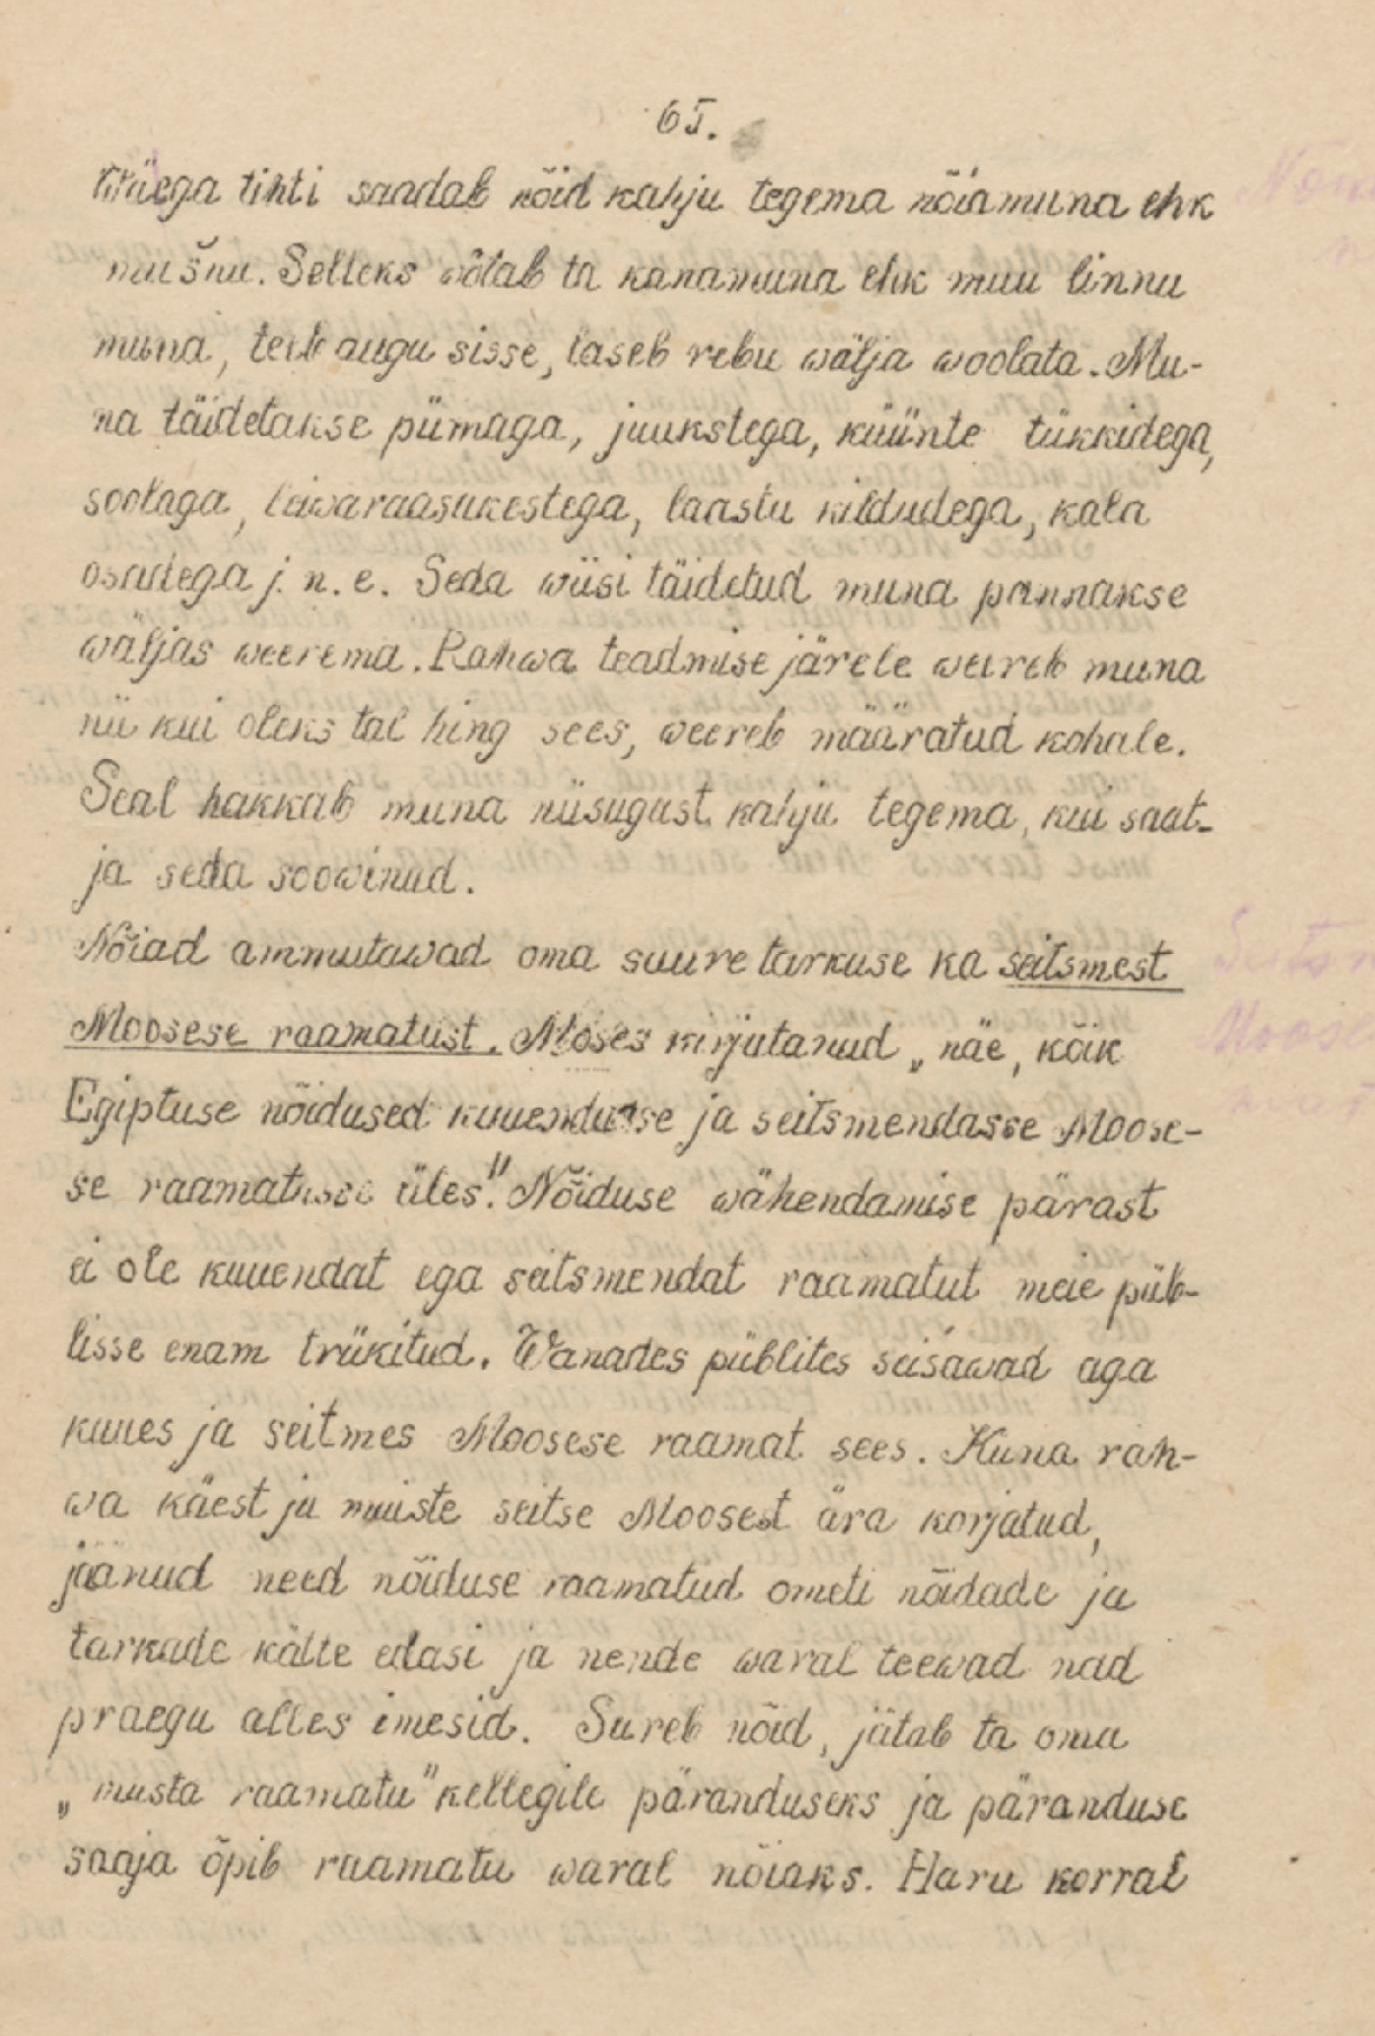 65.
Wäega tihti saadab nõid kahju tegema nõiamuna ehk
nuušnu. Selleks wõtab ta kanamuna ehk muu linnu
muna, teeb augu sisse, laseb rebu wälja woolata. Mu-
na täidetakse piimaga, juukstega, küünte tükkidega,
soolaga, leiwaraasukestega, laastu kildudega, kala
osadega j. n. e. Seda wiisi täidetud muna pannakse
wäljas weerema. Rahwa teadmise järele weereb muna
nii kui oleks tal hing sees, weereb määratud kohale.
Seal hakkab muna niisugust kahju tegema, kui saat-
ja seda soowinud.
Nõiad ammutawad oma suure tarkuse ka seitsmest
Moosese raamatust. Moses kirjutanud „näe, kõik
Egiptuse nõidused kuuendasse ja seitsmendasse Moose-
se raamatusse üles." Nõiduse wähendamise pärast
ei ole kuuendat ega seitsmendat raamatut meie piib-
lisse enam trükitud. Wanades piiblites seisawad aga
kuues ja seitmes Moosese raamat sees. Kuna rah-
wa käest ju muiste seitse Moosest ära korjatud,
jäänud need nõiduse raamatud ometi nõidade ja
tarkade kätte edasi ja nende waral teewad nad
praegu alles imesid. Sureb nõid, jätab ta oma
„musta raamatu" kellegile päranduseks ja päranduse
saaja õpib raamatu waral nõiaks. Haru korral